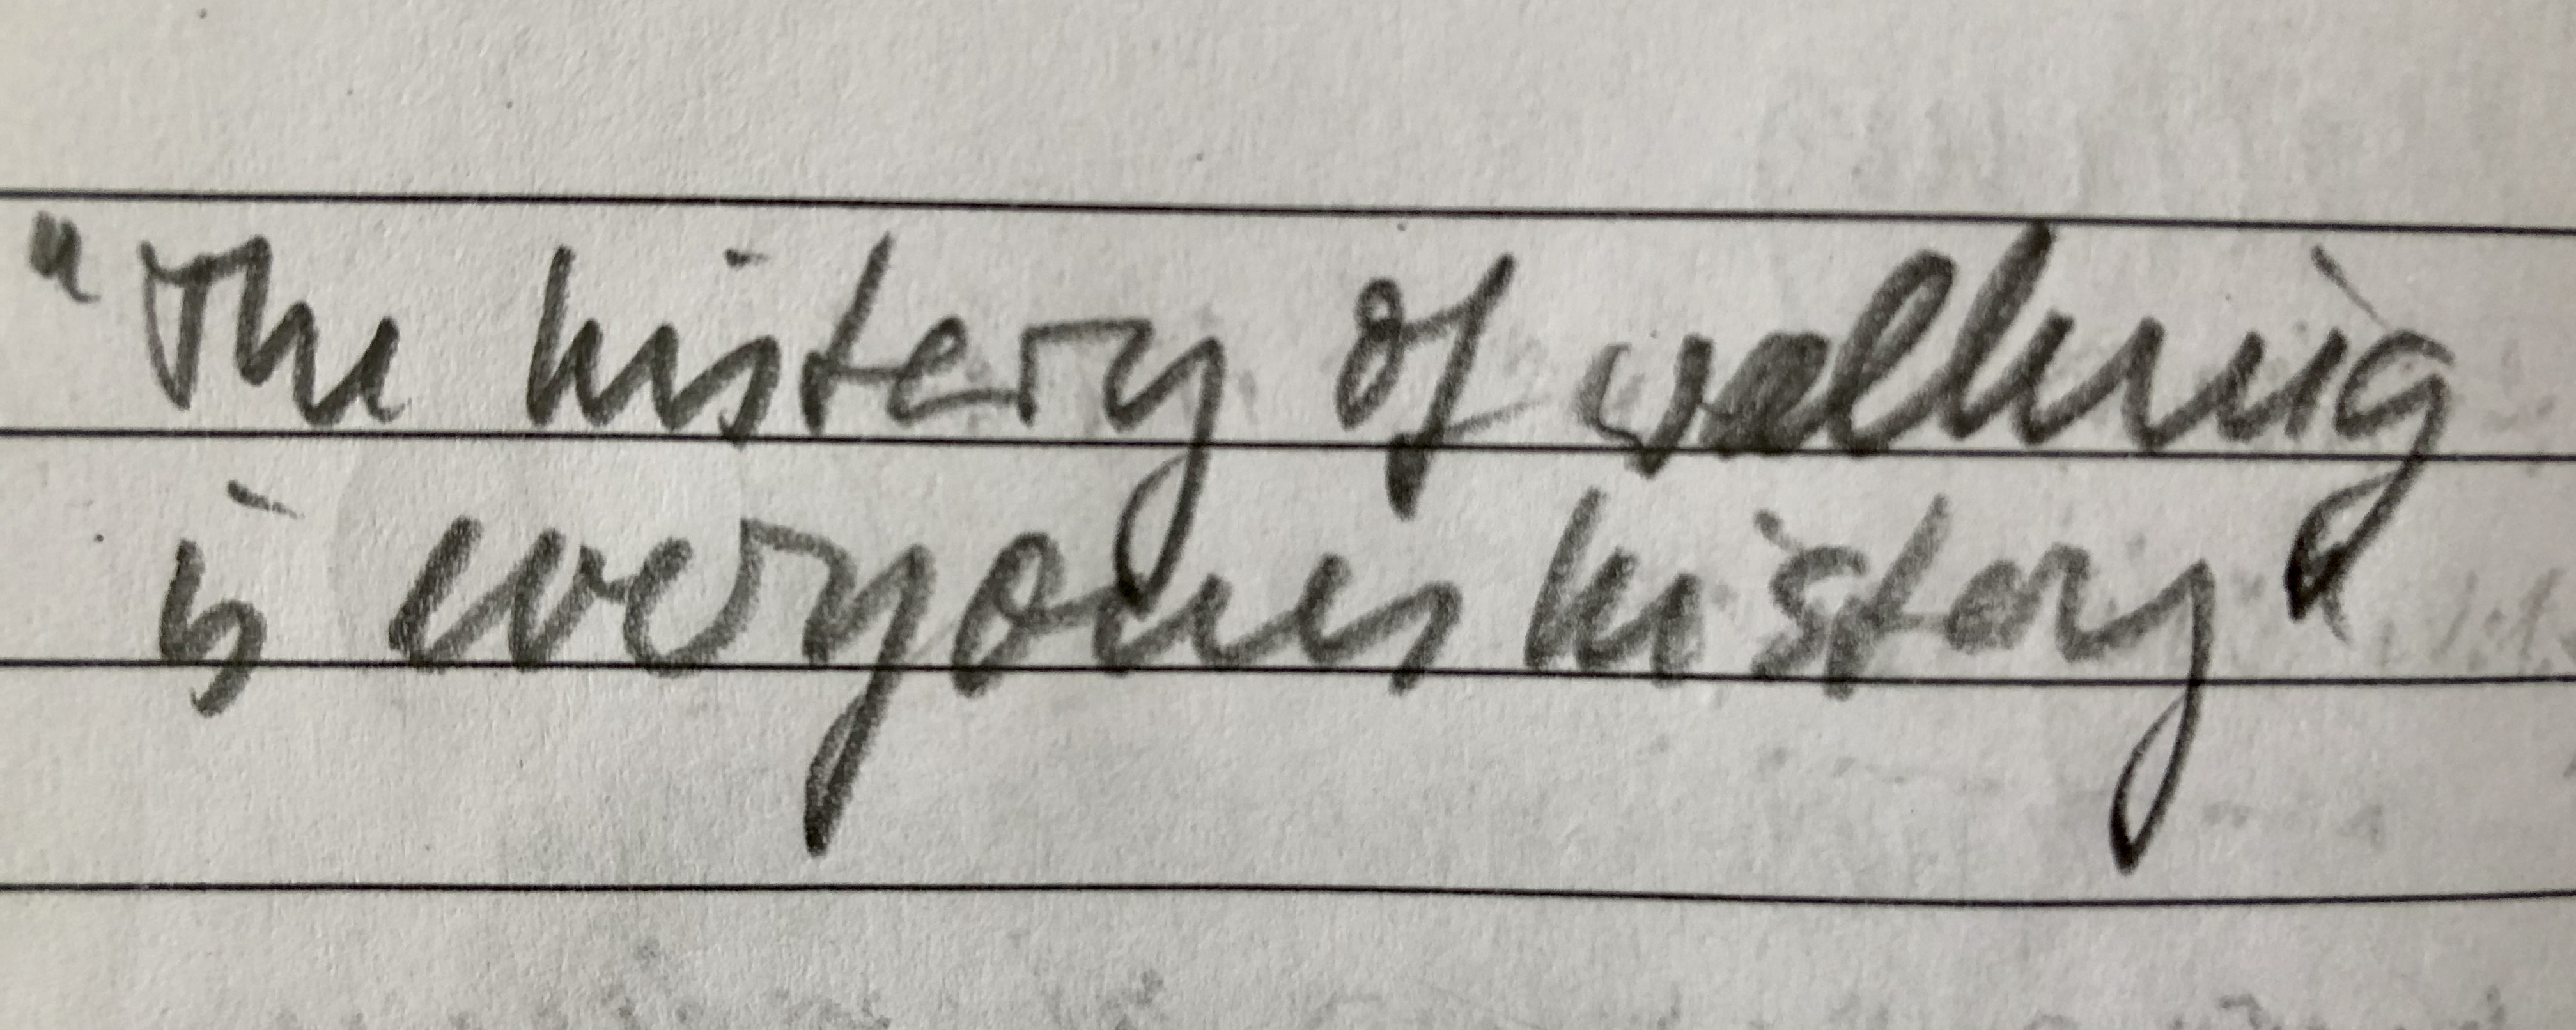 "The history of walking
is everyones history"